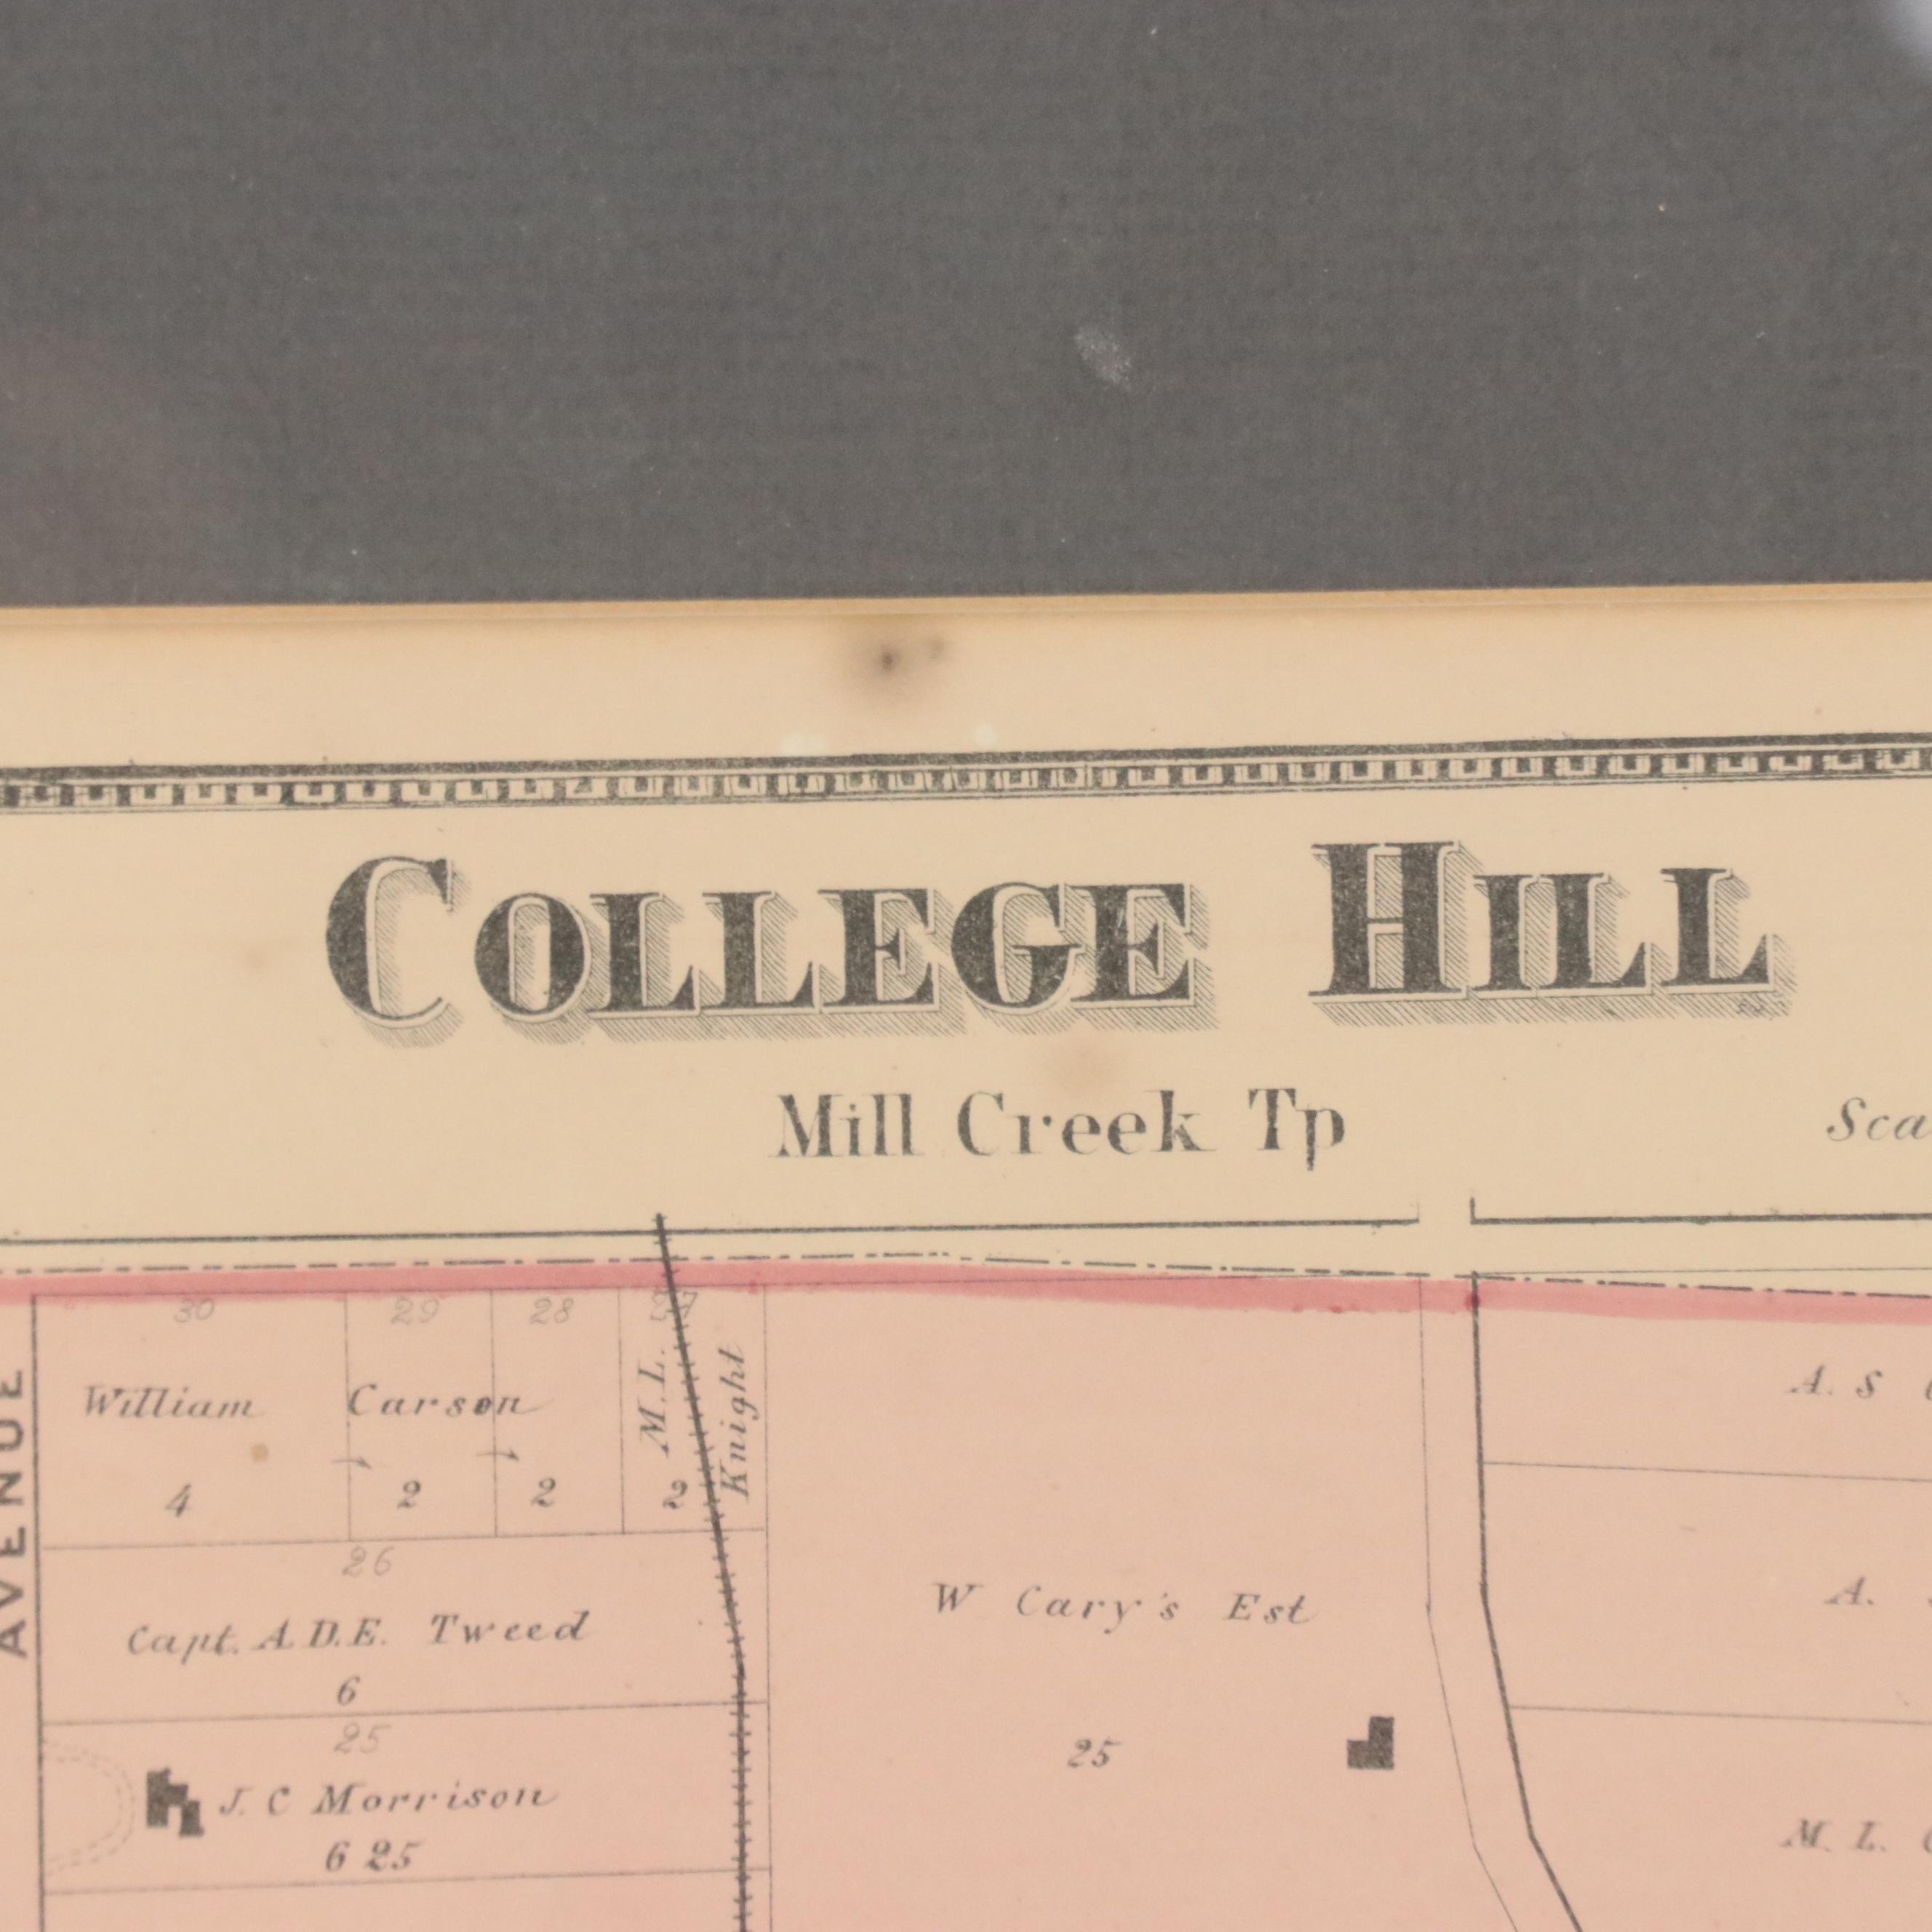 COLLEGE HILL
Mill Creek Tp
Sca
30 29 28
William Carson
4 2 2
M.L.
Knight
2
AVENUE
26
Capt. A.D.E. Tweed
6
25
J. C Morrison
6 25
W Cary's Est
25
A. S
A.
M. L.